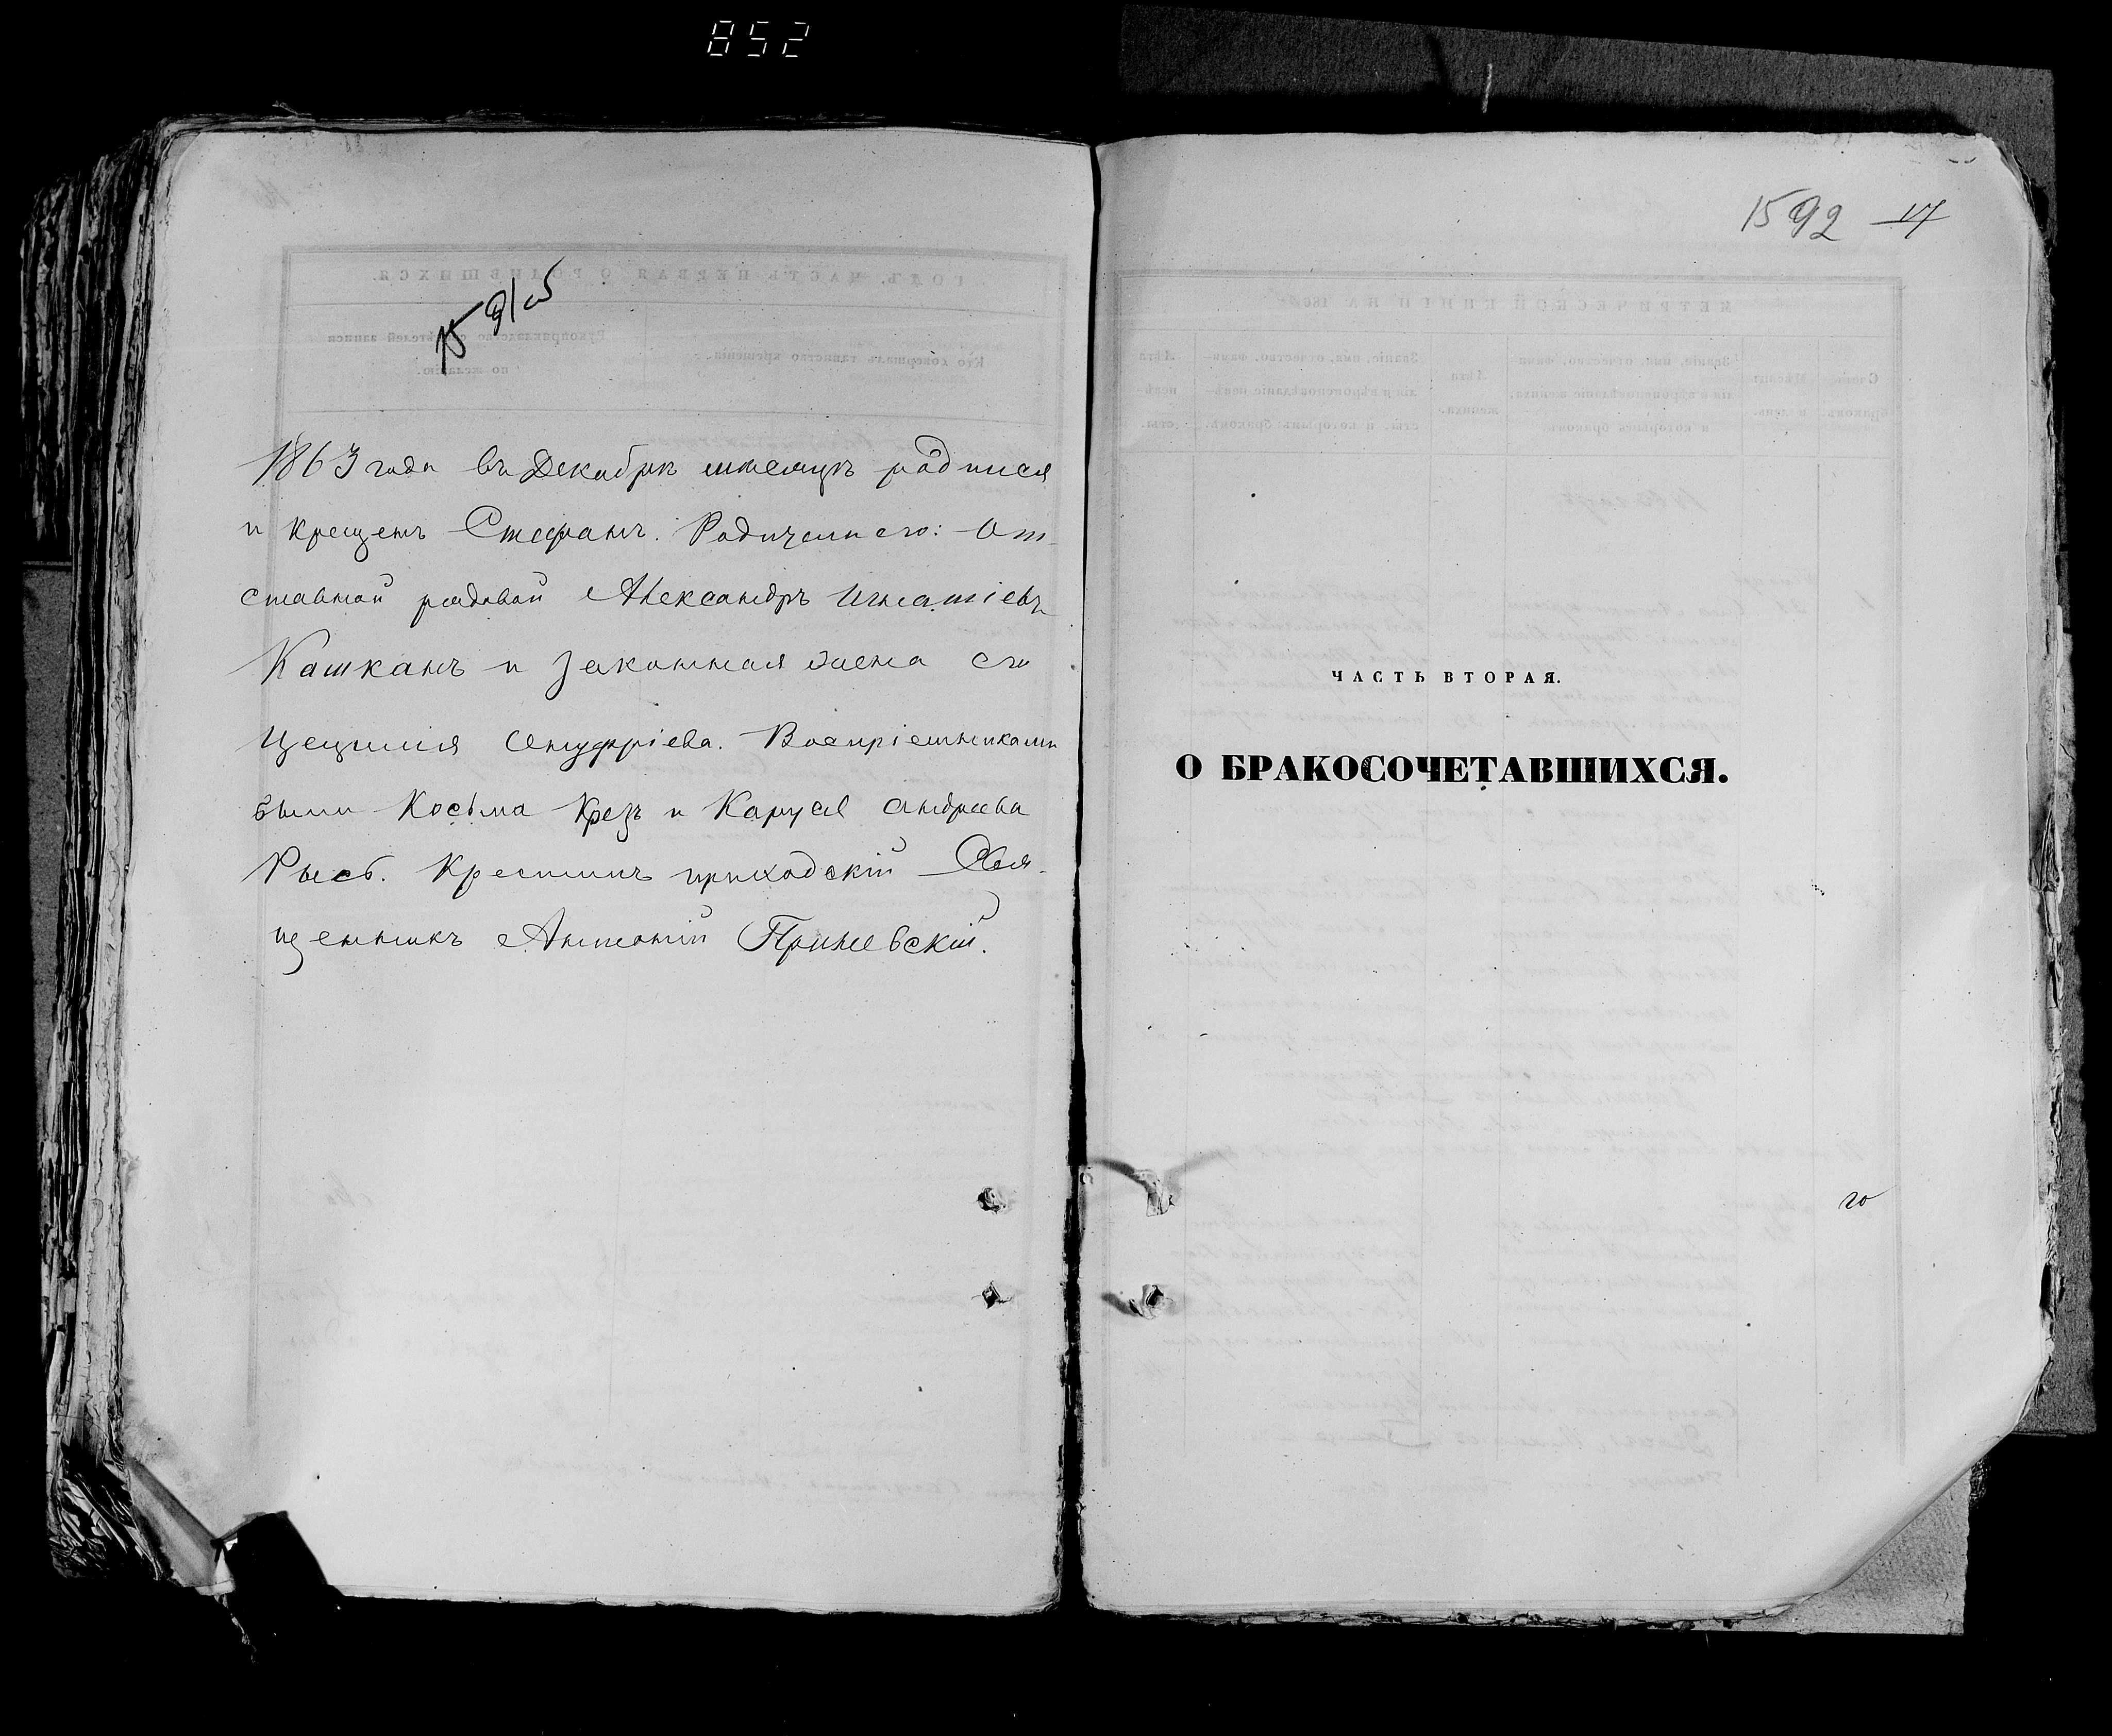 852
1592 17
1591 об
1863 года въ Декабрѣ месяцѣ родился
и крещенъ Стефанъ. Родители его: От-
ставной рядовой Александръ Игнатіевъ
Кашканъ и законная жена его
Цецилія Онуфріева. Воспріемниками
были Косьма Крезъ и Каруся Андреева
Рысь. Крестилъ приходскій Свя-
щенникъ Антоній Приневскій.
ЧАСТЬ ВТОРАЯ.
О БРАКОСОЧЕТАВШИХСЯ.
го